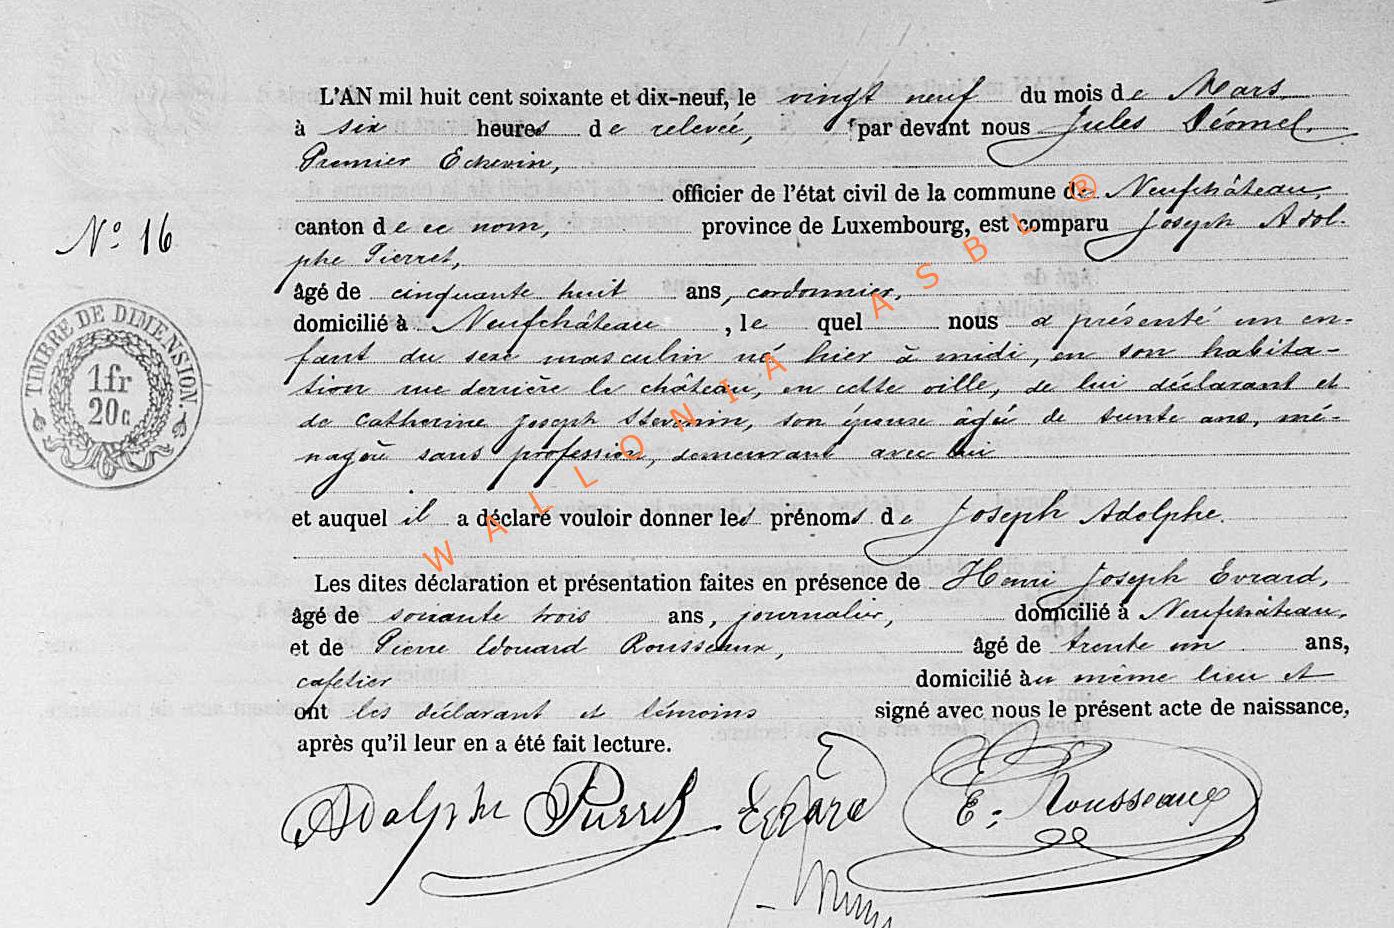 L'AN mil huit cent soixante et dix-neuf, le vingt neuf du mois de Mars
à six heures de relevée, par devant nous Jules
Premier Echevin,
officier de l'état civil de la commune de Neufchâteau,
N° 16
canton de ce nom, province de Luxembourg, est comparu Joseph Adol-
phe Pierret,
âgé de cinquante huit ans, cordonnier,
domicilié à Neufchâteau, le quel nous a présenté un en-
fant du sexe masculin né hier à midi, en son habita-
tion rue derrière le château, en cette ville, de lui déclarant et
de Catherine Joseph son épouse âgée de trente ans, mé-
nagère sans profession, demeurant avec lui
et auquel il a déclaré vouloir donner les prénoms de Joseph Adolphe.
Les dites déclaration et présentation faites en présence de Henri Joseph Evrard,
âgé de soixante trois ans, journalier, domicilié à Neufchâteau,
et de Pierre Edouard Rousseaux, âgé de trente un ans,
cafetier domicilié au même lieu et
ont les déclarant et témoins signé avec nous le présent acte de naissance,
après qu'il leur en a été fait lecture.
Adolphe Pierret Evrard E. Rousseaux
TIMBRE DE DIMENSION.
1fr
20c
WALLONIA ASBL ®